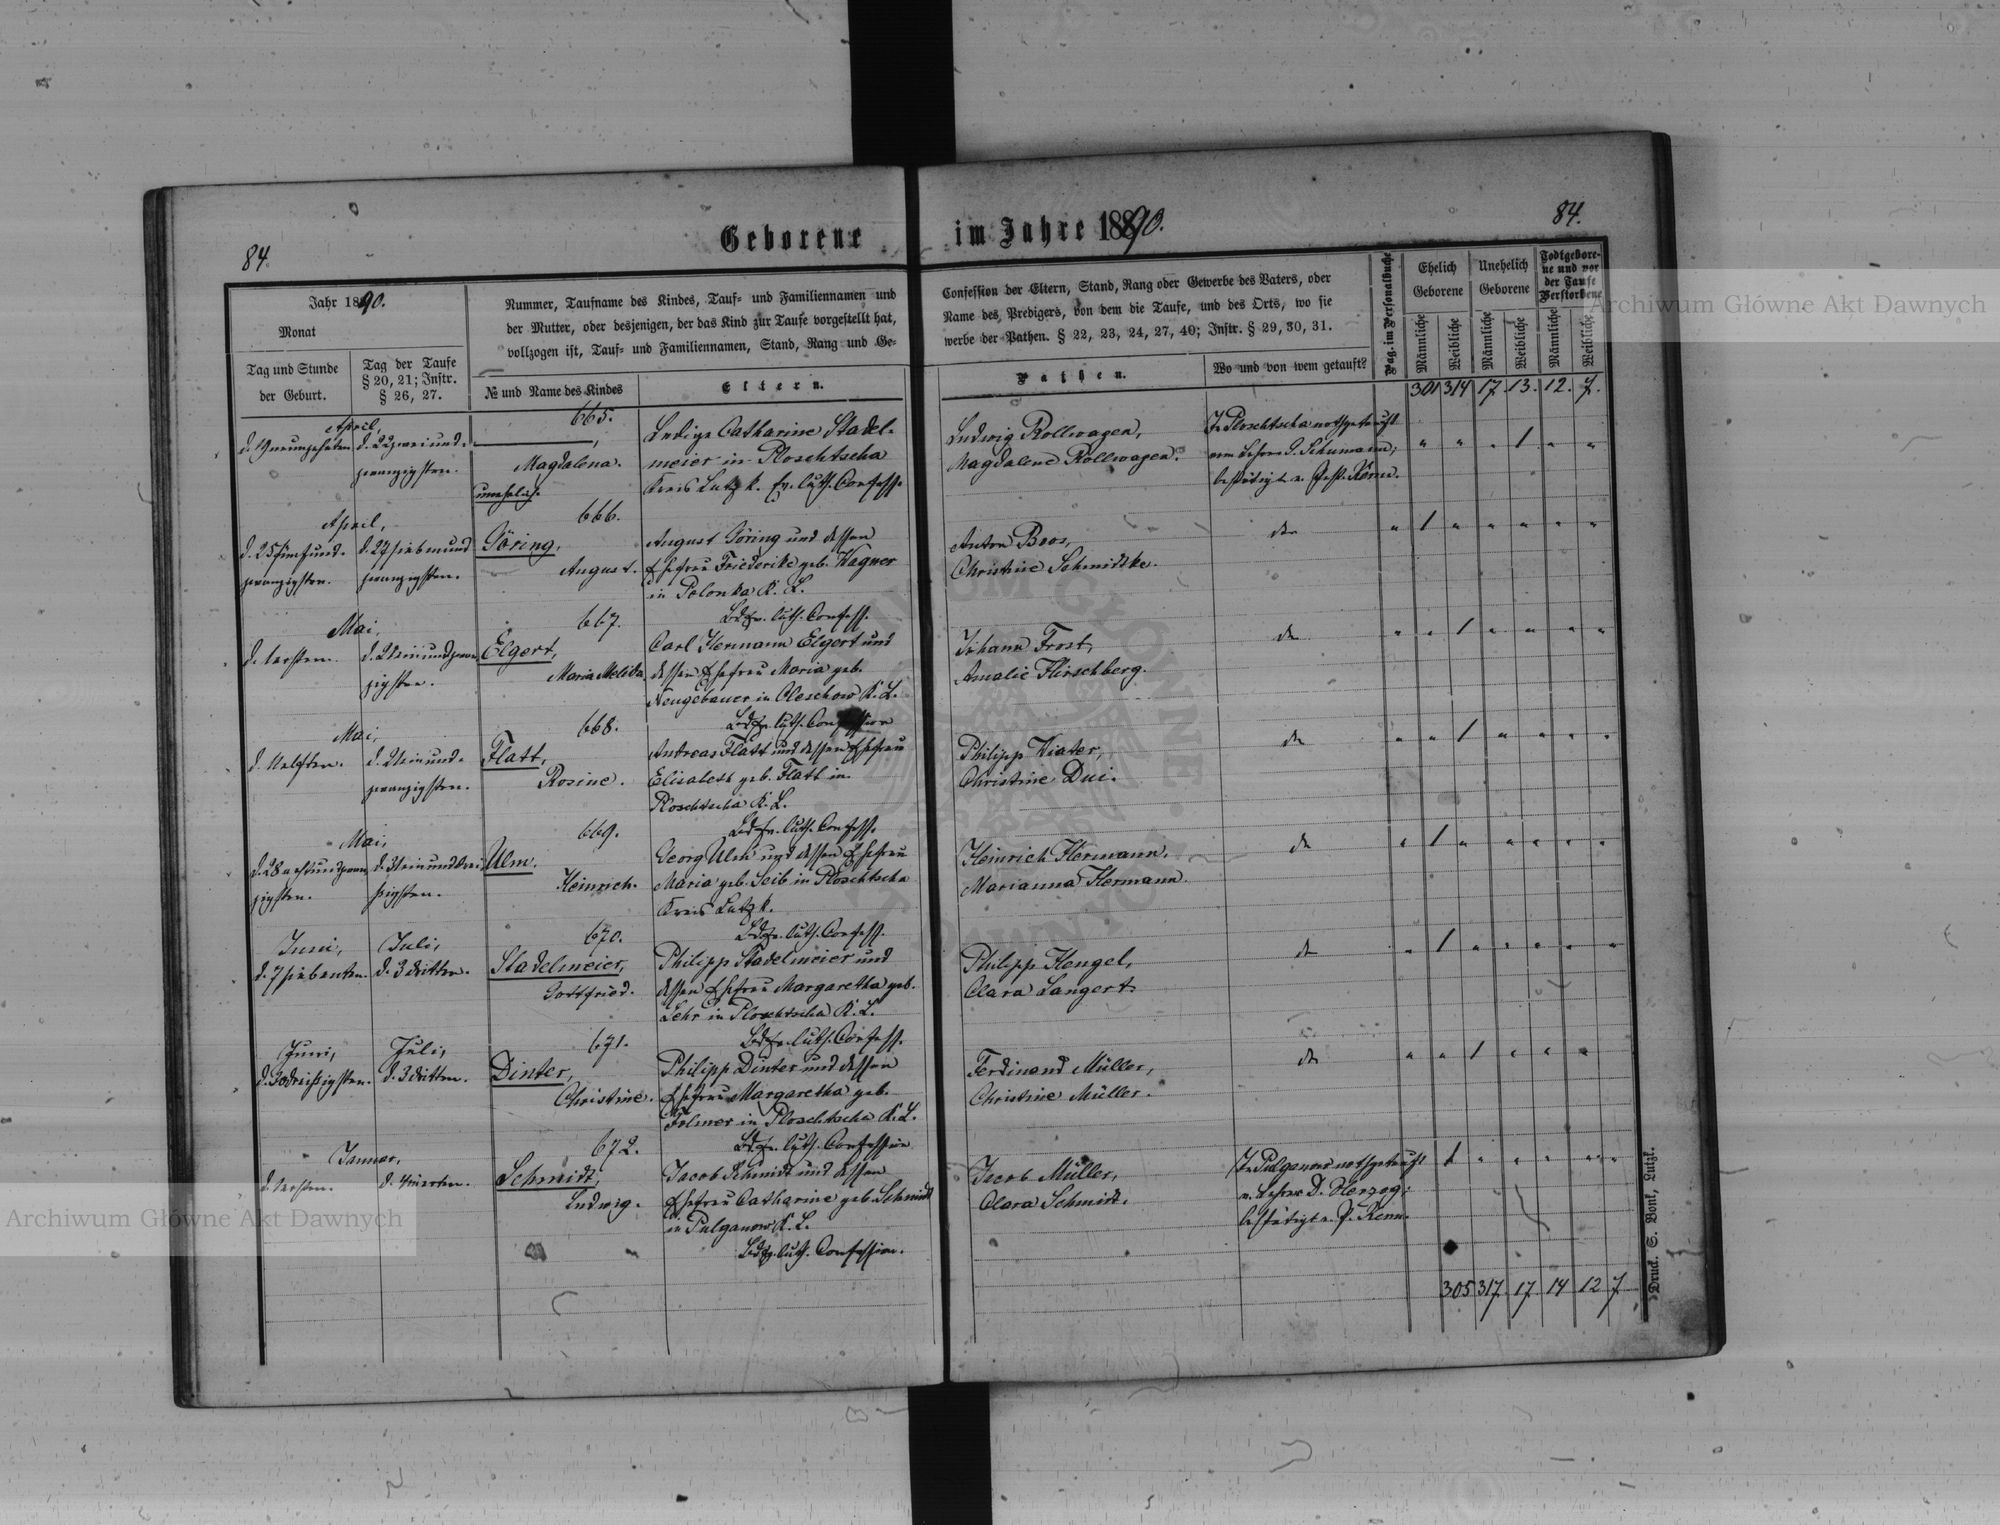 84.
Geborene
im Jahre 1890.
84.
Jahr 1890.
Monat
Tag und Stunde
der Geburt.
Tag der Taufe
§ 20, 21; Instr.
§ 26, 27.
Nummer, Taufname des Kindes, Tauf- und Familiennamen und
der Mutter, oder desjenigen, der das Kind zur Taufe vorgestellt hat,
vollzogen ist, Tauf- und Familiennamen, Stand, Rang und Ge-
№ und Name des Kindes
Eltern.
Confession der Eltern, Stand, Rang oder Gewerbe des Vaters, oder
Name des Predigers, von dem die Taufe, und des Orts, wo sie
werbe der Pathen. § 22, 23, 24, 27, 40; Instr. § 29, 30, 31.
Pathen.
Wo und von wem getauft?
Pag. im Personalbuche
Ehelich
Geborene
Unehelich
Geborene
Todtgebore-
ne und vor
der Taufe
Verstorbene
Männliche
Weibliche
Männliche
Weibliche
Männliche
Weibliche
301 314 17. 13. 12. 7.
April,
d. 19 neunzehnten
d. 22 zwei und-
zwanzigsten.
665.
Magdalena.
unehelich.
Ledige Catharine Stadel-
meier in Ploschtscha
Kreis Lutzk. Ev. luth. Confess.
Ludwig Rollwagen,
Magdalene Rollwagen.
In Ploschtscha nothgetauft
vom Lehrer G. Schumann;
bestätigt v. Past. Kerm.
April,
d. 25 fünfund-
zwanzigsten.
d. 27 siebenund
zwanzigsten.
666.
Göring,
August.
August Göring und dessen
Ehefrau Friederike geb. Wagner
in Polonka K. L.
Beide ev. luth. Confess.
Anton Boos,
Christine Schmidtke.
do
Mai,
d. 1 ersten.
d. 21 ein und zwan
zigsten.
667.
Elgert,
Maria Melida.
Carl Hermann Elgert und
dessen Ehefrau Maria geb.
Neugebauer in Oleschow K. L.
Beide ev. luth. Confession
Johann Frost,
Amalie Hirschberg.
do
Mai,
d. 11 elften.
d. 21 ein und-
zwanzigsten.
668.
Flatt,
Rosine.
Andreas Flatt und dessen Ehefrau
Elisabeth geb. Flatt in
Ploschtscha K. L.
Beide ev. luth. Confess.
Philipp Kiater,
Christine Dui.
do
Mai,
d. 28 acht und zwan
zigsten.
d. 31 ein und drei
ßigsten.
669.
Ulm.
Heinrich.
Georg Ulm und dessen Ehefrau
Maria geb. Seib in Ploschtscha
Kreis Lutzk.
Beide ev. luth. Confess.
Heinrich Hermann.
Marianna Hermann.
do
Juni,
d. 7 siebenten.
Juli,
d. 3 dritten.
670.
Stadelmeier,
Gottfried.
Philipp Stadelmeier und
dessen Ehefrau Margaretha geb.
Lehr in Ploschtscha K. L.
Beide ev. luth. Confess.
Philipp Hengel,
Clara Langert.
do
Juni,
d. 30 dreißigsten.
Juli,
d. 3 dritten.
671.
Dinter,
Christine.
Philipp Dinter und dessen
Ehefrau Margaretha geb.
Folmer in Ploschtscha K. L.
Beide ev. luth. Confession
Ferdinand Müller,
Christine Müller.
do
Januar,
d. 1 ersten.
d. 4 vierten.
672.
Schmidt,
Ludwig.
Jacob Schmidt und dessen
Ehefrau Catharine geb. Schmidt
in Pulganow K. L.
Beide ev. luth. Confession.
Jacob Müller,
Clara Schmidt.
In Pulganow nothgetauft
v. Lehrer D. Herzog;
bestätigt v. P. Kerm.
305 317 17 14 12 7
Druck. S. Bonk, Lutzk.
Archiwum Główne Akt Dawnych
Archiwum Główne Akt Dawnych